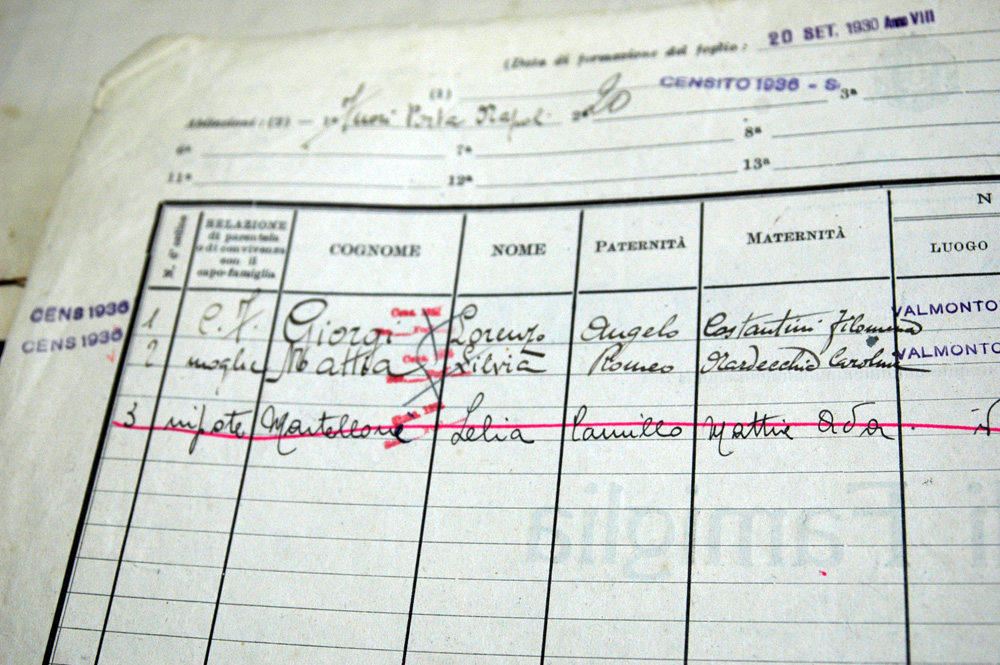 (Data di formazione del foglio: 20 SET. 1930 Anno VIII
(1) CENSITO 1936 - S.
Abitazioni: (2) — 1ª Fuori Porta Napol. 2ª 20 3ª
6ª 7ª 8ª
11ª 12ª 13ª
N. d'ordine RELAZIONE di parentela o di convivenza con il capo-famiglia COGNOME NOME PATERNITÀ MATERNITÀ N
LUOGO
CENS 1936 1 C.F. Giorgi Lorenzo Angelo Costantini Filomena VALMONTO
CENS 1936 2 moglie Mattia Silvia Romeo Nardecchia Carolina VALMONTO
3 nipote Martellone Lelia Camillo Mattia Ada
di Famiglia